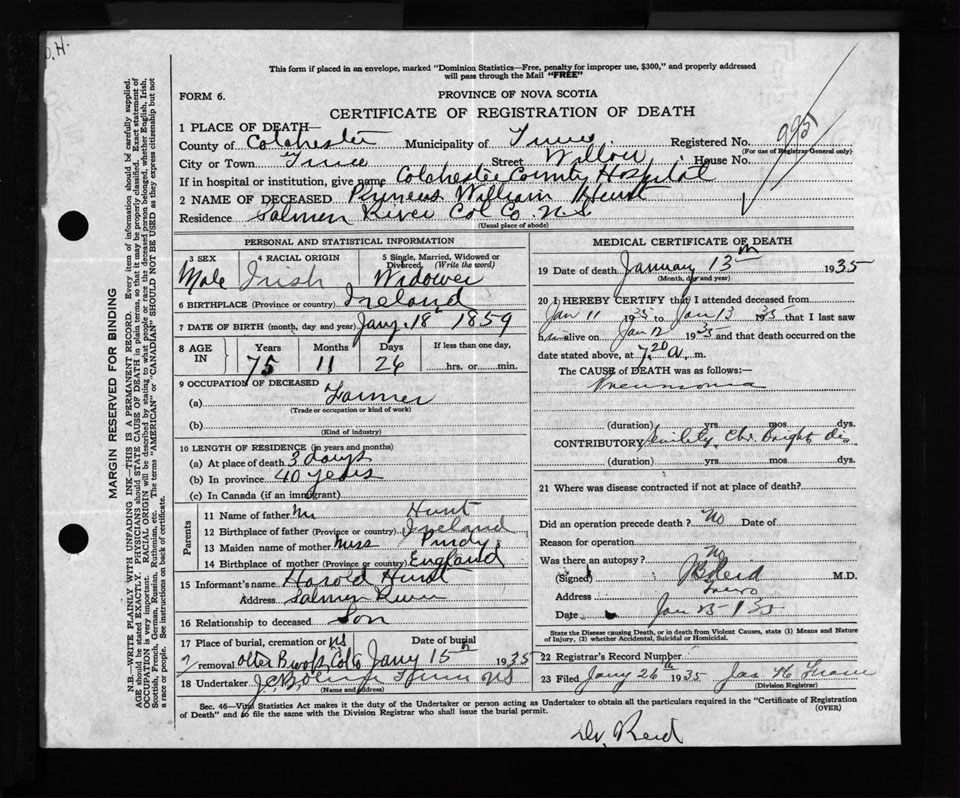 This form if placed in an envelope, marked "Dominion Statistics—Free, penalty for improper use, $300," and properly addressed
will pass through the Mail "FREE"
FORM 6.
PROVINCE OF NOVA SCOTIA
CERTIFICATE OF REGISTRATION OF DEATH
1 PLACE OF DEATH—
County of Colchester Municipality of Truro Registered No. 995
(For use of Registrar General only)
City or Town Truro Street Willow House No.
If in hospital or institution, give name Colchester County Hospital
2 NAME OF DECEASED William Hunt
Residence Salmon River Col Co N.S
(Usual place of abode)
PERSONAL AND STATISTICAL INFORMATION
3 SEX 4 RACIAL ORIGIN 5 Single, Married, Widowed or
Divorced. (Write the word)
Male Irish Widower
6 BIRTHPLACE (Province or country) Ireland
7 DATE OF BIRTH (month, day and year) Jany. 18" 1859
8 AGE IN Years Months Days If less than one day,
75 11 26 hrs. or min.
9 OCCUPATION OF DECEASED
(a) Farmer
(Trade or occupation or kind of work)
(b)
(Kind of industry)
10 LENGTH OF RESIDENCE (in years and months)
(a) At place of death 3 days
(b) In province 40 years
(c) In Canada (if an immigrant)
Parents
11 Name of father Mr Hunt
12 Birthplace of father (Province or country) Ireland
13 Maiden name of mother Miss Purdy
14 Birthplace of mother (Province or country) England
15 Informant's name Harold Hunt
Address Salmon River
16 Relationship to deceased Son
17 Place of burial, cremation or removal Date of burial
NS
Col Co Jany 15th 1935
18 Undertaker Truro NS
(Name and address)
MEDICAL CERTIFICATE OF DEATH
19 Date of death January 13th 1935
(Month, day and year)
20 I HEREBY CERTIFY that I attended deceased from
Jan 11 1935 to Jan 13 1935 that I last saw
him alive on Jan 12 1935 and that death occurred on the
date stated above, at 7.20 A. m.
The CAUSE of DEATH was as follows:—
Pneumonia
(duration) yrs. mos. dys.
CONTRIBUTORY Senility, Chr. Bright Dis
(duration) yrs. mos. dys.
21 Where was disease contracted if not at place of death?
Did an operation precede death? No Date of
Reason for operation
Was there an autopsy? No
(Signed) Reid M.D.
Address Truro
Date Jan
State the Disease causing Death, or in death from Violent Causes, state (1) Means and Nature
of Injury, (2) whether Accidental, Suicidal or Homicidal.
22 Registrar's Record Number
23 Filed Jany 26th 1935 Jas
(Division Registrar)
Sec. 46—Vital Statistics Act makes it the duty of the Undertaker or person acting as Undertaker to obtain all the particulars required in the "Certificate of Registration
of Death" and to file the same with the Division Registrar who shall issue the burial permit. (OVER)
Dr. Reid
MARGIN RESERVED FOR BINDING
N.B.—WRITE PLAINLY WITH UNFADING INK—THIS IS A PERMANENT RECORD. Every item of information should be carefully supplied.
AGE should be stated EXACTLY. PHYSICIANS should STATE CAUSE OF DEATH in plain terms, so that it may be properly classified. Exact statement of
OCCUPATION is very important. RACIAL ORIGIN will be described by stating to what people or race the deceased person belonged, whether English, Irish,
Scottish, French, German, Russian, Ruthenian, etc. The terms "AMERICAN" or "CANADIAN" SHOULD NOT BE USED as they express citizenship but not
a race or people. See instructions on back of certificate.